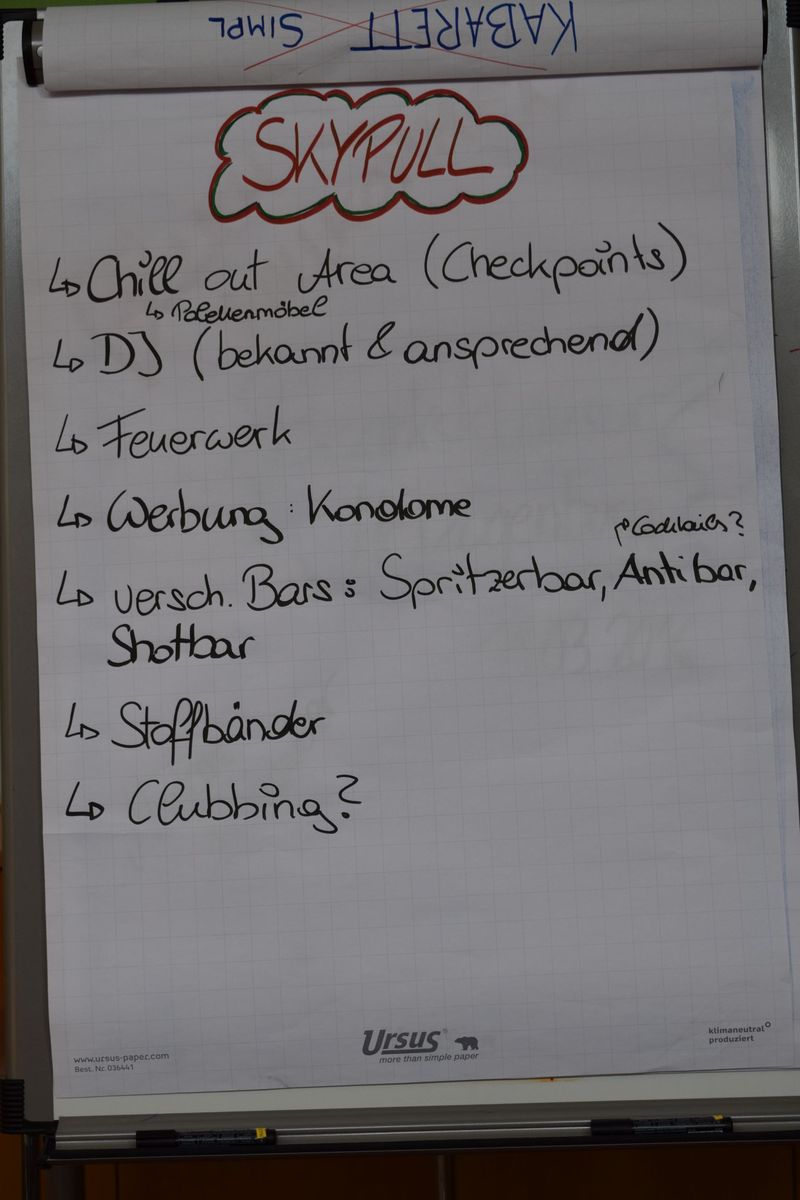 KABARETT SIMPL
SKYPULL
↳ Chill out Area (Checkpoints)
↳ Palettenmöbel
↳ DJ (bekannt & ansprechend)
↳ Feuerwerk
↳ Werbung: Kondome
Cocktails?
↳ versch. Bars: Spritzerbar, Antibar,
Shotbar
↳ Stoffbänder
↳ Clubbing?
www.ursus-paper.com
Best. Nr. 036441
Ursus®
more than simple paper
klimaneutral
produziert